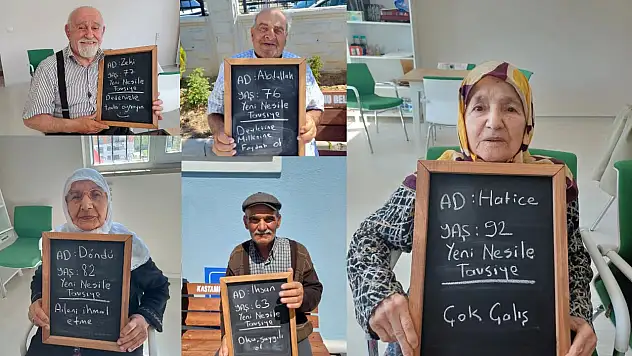 AD: Zeki
YAŞ: 77
Yeni Nesile
Tavsiye
Dedenizle
AD: Abdullah
YAŞ: 76
Yeni Nesile
Tavsiye
Devletine
Milletine
Faydalı ol
AD: Döndü
YAŞ: 82
Yeni Nesile
Tavsiye
Aileni ihmal
etme
AD: İhsan
YAŞ: 63
Yeni Nesile
Tavsiye
Oku, saygılı
ol
KASTAM
AD: Hatice
YAŞ: 92
Yeni Nesile
Tavsiye
Çok Çalış